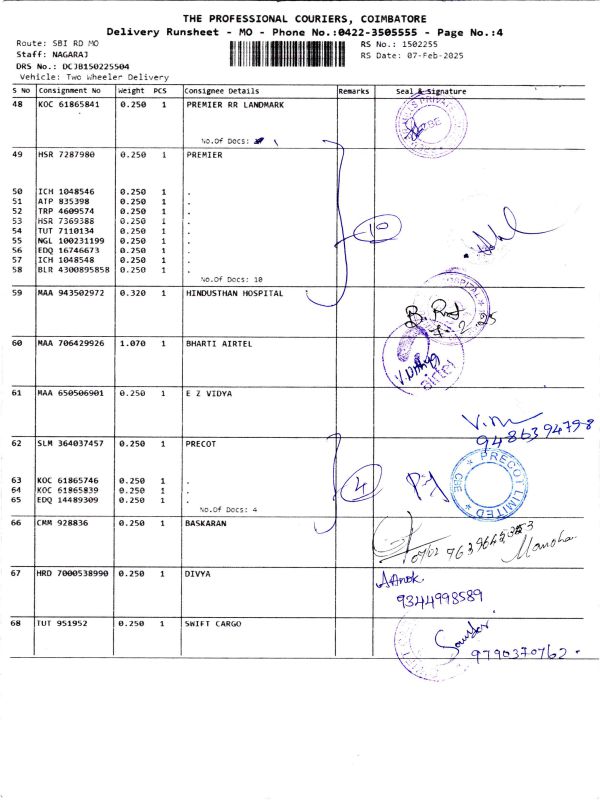 THE PROFESSIONAL COURIERS, COIMBATORE
Delivery Runsheet - MO - Phone No.:0422-3505555 - Page No.:4
Route: SBI RD MO
RS No.: 1502255
Staff: NAGARAJ
RS Date: 07-Feb-2025
DRS No.: DCJB150225504
Vehicle: Two Wheeler Delivery
S No Consignment No Weight PCS Consignee Details Remarks Seal & Signature
48 KOC 61865841 0.250 1 PREMIER RR LANDMARK
No.Of Docs: 1
49 HSR 7287980 0.250 1 PREMIER
50 ICH 1048546 0.250 1 .
51 ATP 835398 0.250 1 .
52 TRP 4609574 0.250 1 .
53 HSR 7369388 0.250 1 .
54 TUT 7110134 0.250 1 .
10
55 NGL 100231199 0.250 1 .
56 EDQ 16746673 0.250 1 .
57 ICH 1048548 0.250 1 .
58 BLR 4300895858 0.250 1 .
No.Of Docs: 10
59 MAA 943502972 0.320 1 HINDUSTHAN HOSPITAL
60 MAA 706429926 1.070 1 BHARTI AIRTEL
airtel
61 MAA 650506901 0.250 1 E Z VIDYA
9486394798
62 SLM 364037457 0.250 1 PRECOT
PRECOT LIMITED
CBE
63 KOC 61865746 0.250 1 .
4
64 KOC 61865839 0.250 1 .
65 EDQ 14489309 0.250 1 .
No.Of Docs: 4
66 CMM 928836 0.250 1 BASKARAN
67 HRD 7000538990 0.250 1 DIVYA
9344998589
68 TUT 951952 0.250 1 SWIFT CARGO
9790370762